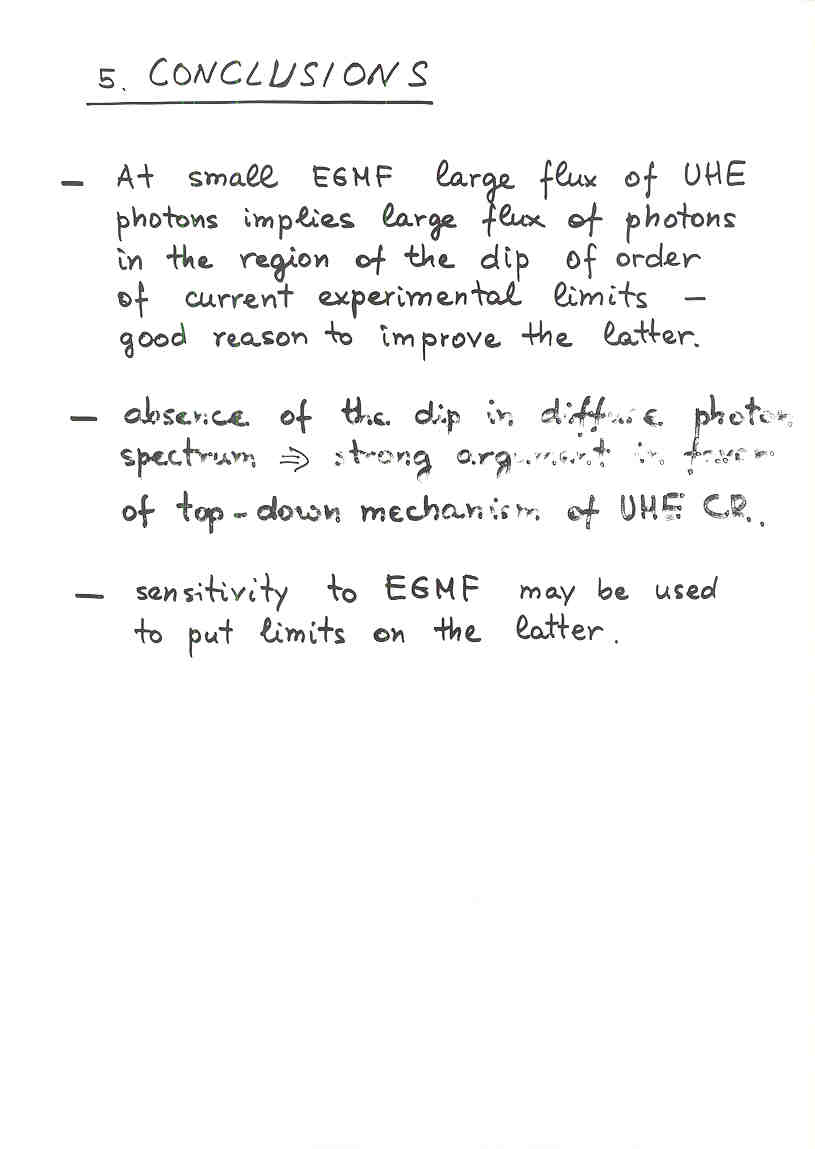 5. CONCLUSIONS
– At small EGMF large flux of UHE
photons implies large flux of photons
in the region of the dip of order
of current experimental limits –
good reason to improve the latter.
– absence of the dip in diffuse photon
spectrum ⇒ strong argument in favor
of top-down mechanism of UHE CR.
– sensitivity to EGMF may be used
to put limits on the latter.